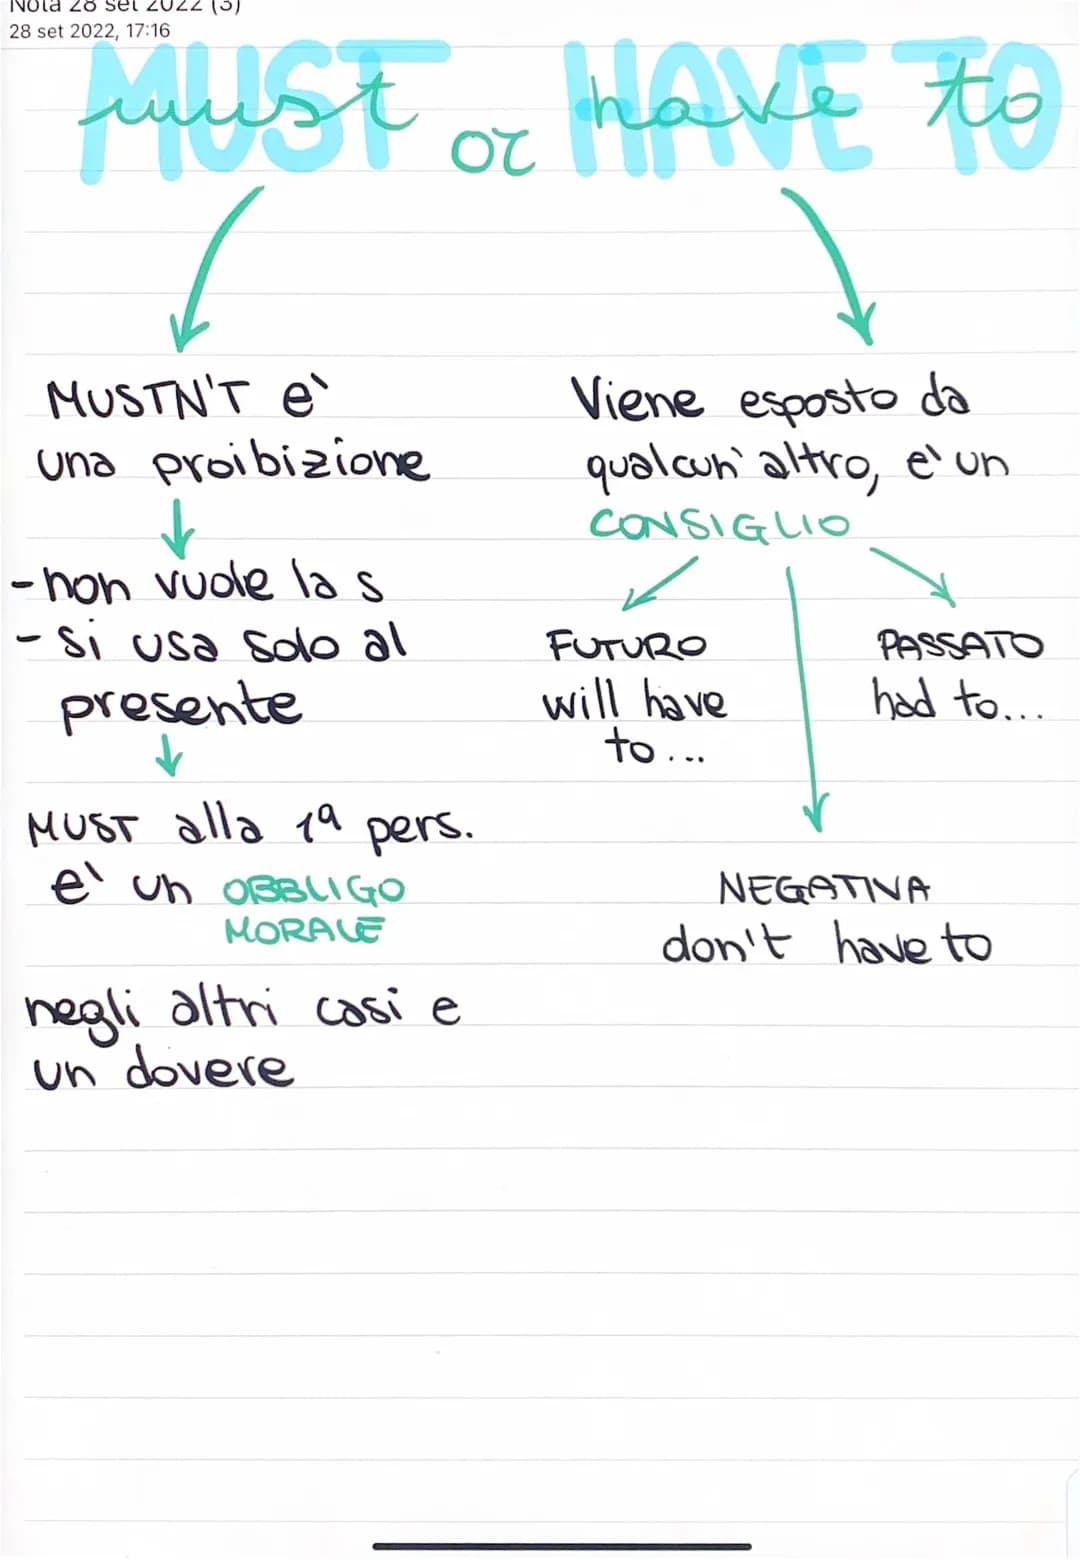 Nota 28 set 2022 (3)
28 set 2022, 17:16
MUST HAVE TO
must or have to
MUSTN'T e'
una proibizione
- non vuole la s
- si usa solo al
presente
MUST alla 1ª pers.
e' un OBBLIGO
MORALE
negli altri casi e
un dovere
Viene esposto da
qualcun'altro, e' un
CONSIGLIO
FUTURO
will have
to...
PASSATO
had to...
NEGATIVA
don't have to